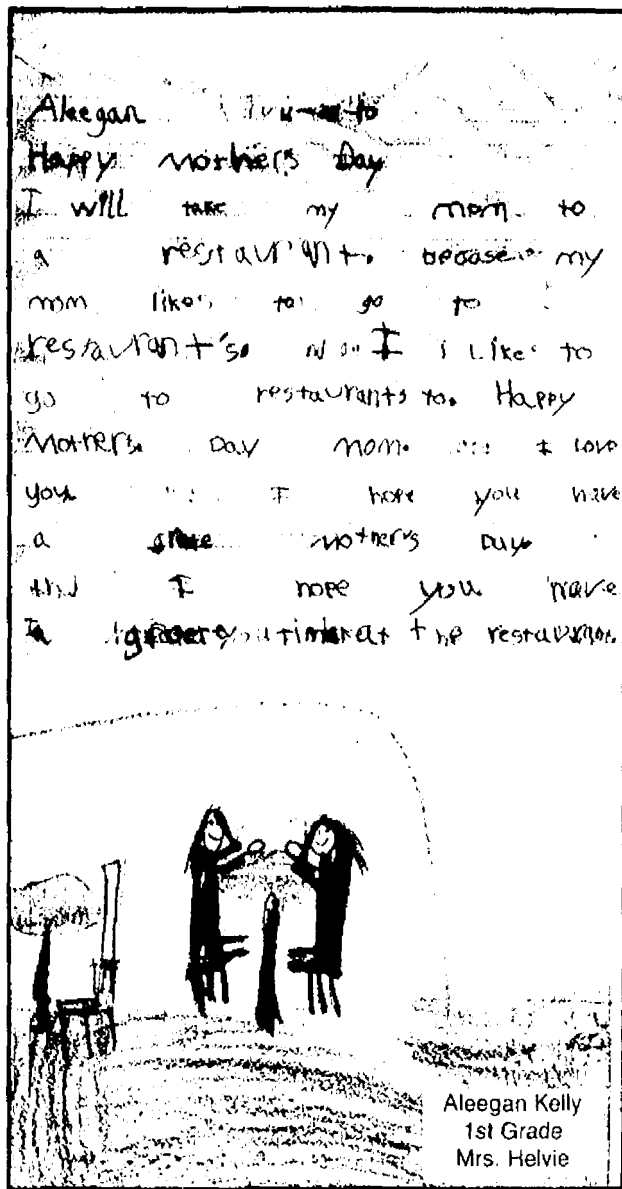 Aleegan to
Happy Mother's Day
I will take my mom to
a restaurant. becase my
mom likes to go to
restaurant's. I likes to
go to restaurants to. Happy
Mothers. Day mom. I love
you I hope you have
a Mother's Day.
and I hope you have
a time at the restaurant.
Aleegan Kelly
1st Grade
Mrs. Helvie